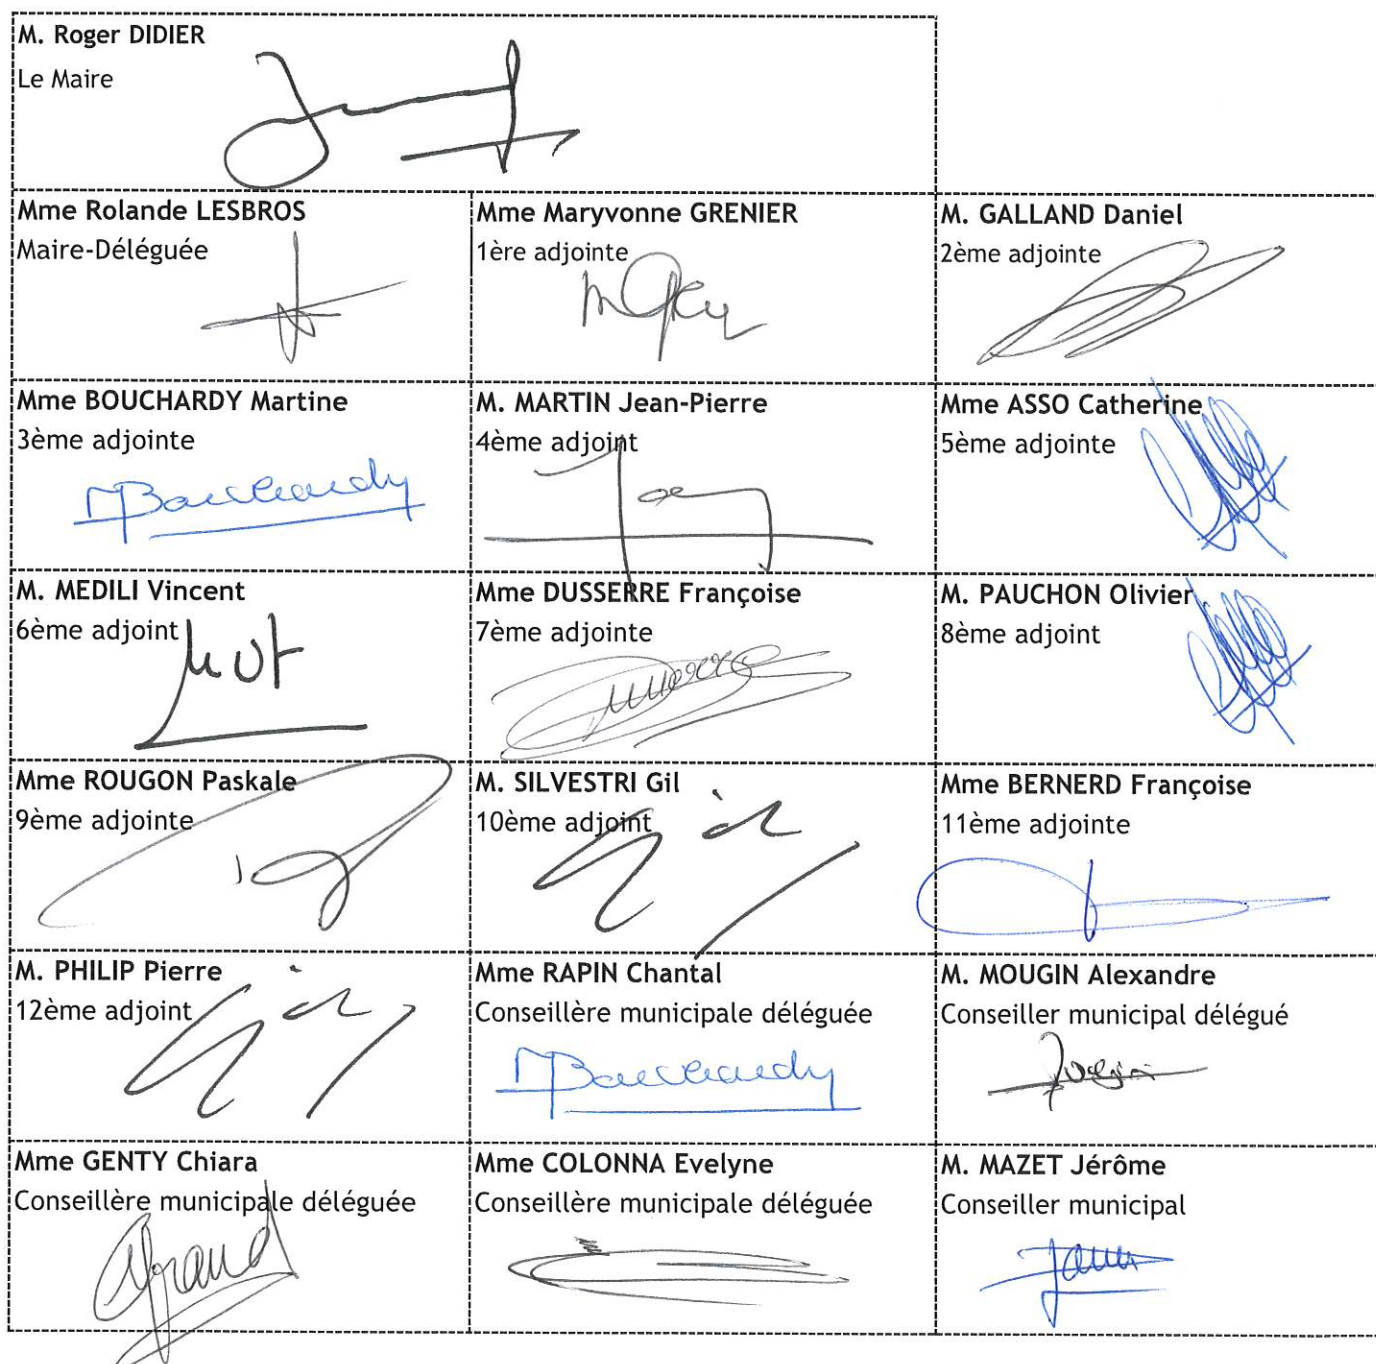 M. Roger DIDIER
Le Maire
Mme Rolande LESBROS
Maire-Déléguée
Mme Maryvonne GRENIER
1ère adjointe
M. GALLAND Daniel
2ème adjointe
Mme BOUCHARDY Martine
3ème adjointe
Bouchardy
M. MARTIN Jean-Pierre
4ème adjoint
Mme ASSO Catherine
5ème adjointe
M. MEDILI Vincent
6ème adjoint
Mme DUSSERRE Françoise
7ème adjointe
M. PAUCHON Olivier
8ème adjoint
Mme ROUGON Paskale
9ème adjointe
M. SILVESTRI Gil
10ème adjoint
Mme BERNERD Françoise
11ème adjointe
M. PHILIP Pierre
12ème adjoint
Mme RAPIN Chantal
Conseillère municipale déléguée
Bouchardy
M. MOUGIN Alexandre
Conseiller municipal délégué
Mme GENTY Chiara
Conseillère municipale déléguée
Mme COLONNA Evelyne
Conseillère municipale déléguée
M. MAZET Jérôme
Conseiller municipal